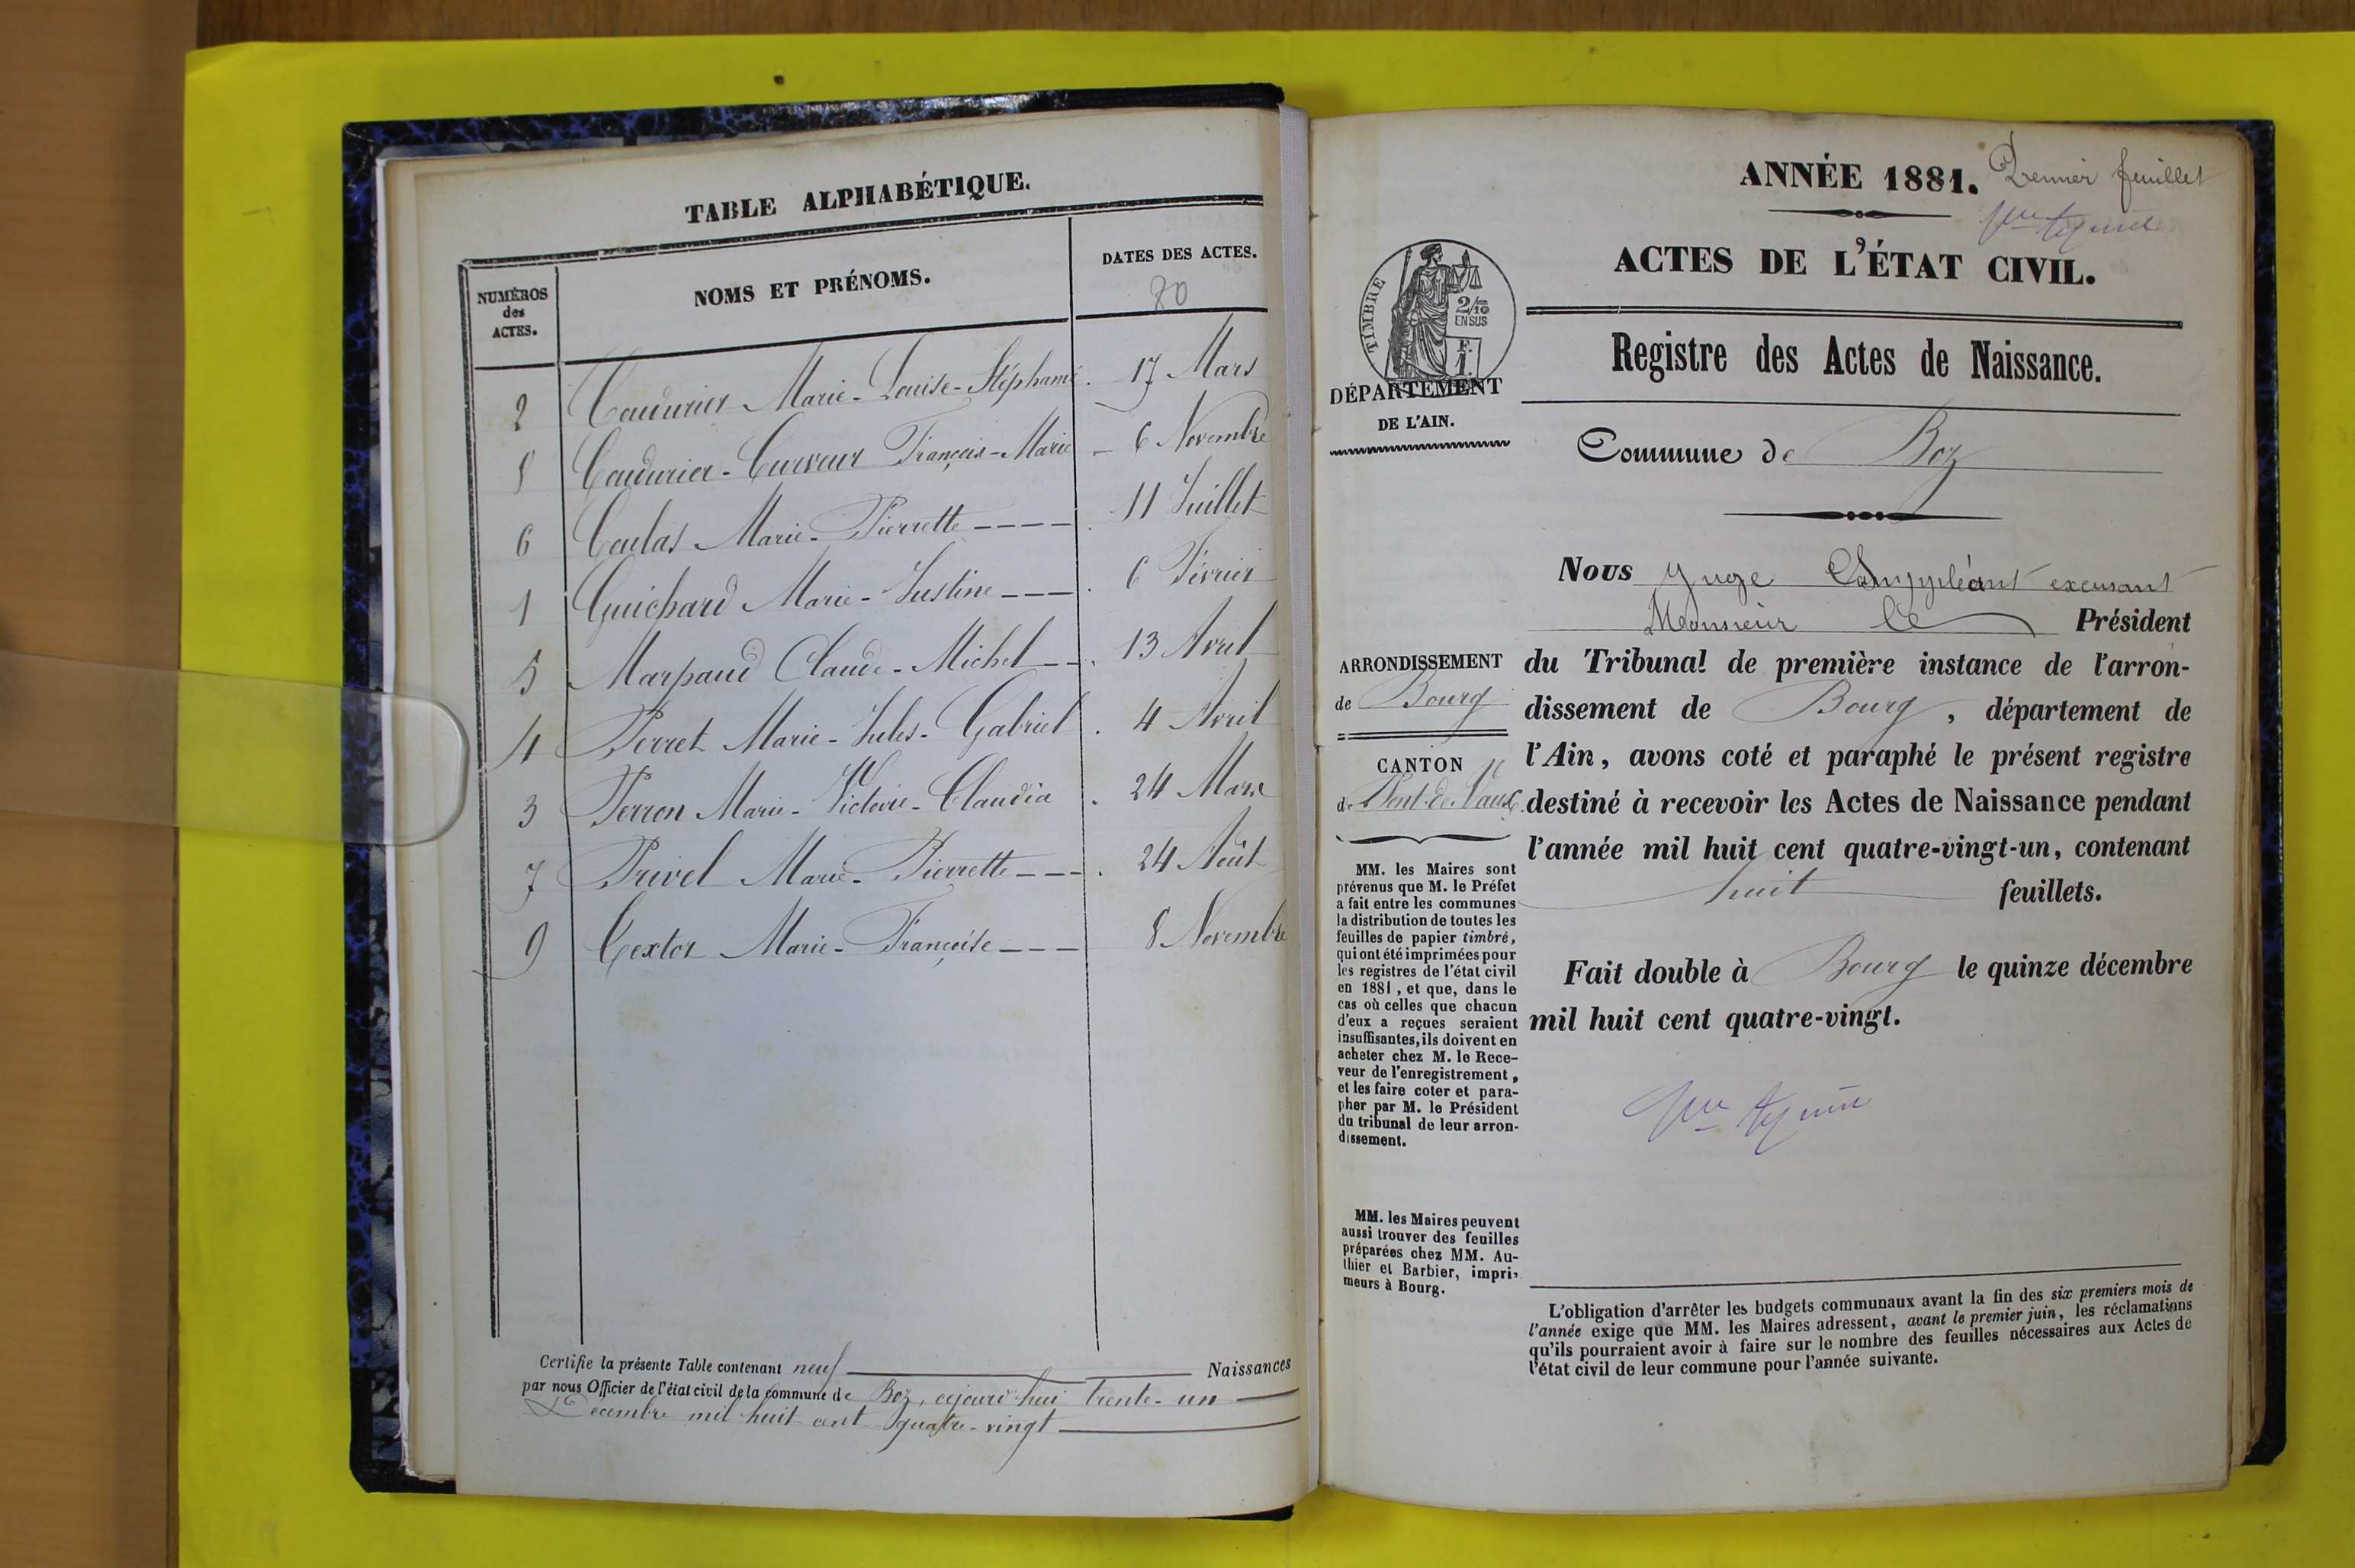 TABLE ALPHABÉTIQUE.
NUMÉROS
des
ACTES.
NOMS ET PRÉNOMS.
DATES DES ACTES.
80
2 Coudurier Marie-Louise-Stéphanie. 17 Mars
8 Coudurier-Curveur François-Marie - 6 Novembre
6 Coulas Marie-Pierrette ---- . 11 Juillet
1 Guichard Marie-Justine --- . 6 Février
5 Marpaud Claude-Michel -- . 13 Avril
4 Perret Marie-Jules-Gabriel . 4 Avril
3 Perron Marie-Victoire-Claudia . 24 Mars
7 Privel Marie-Pierrette --- . 24 Août
9 Textor Marie-Françoise --- 8 Novembre
Certifie la présente Table contenant neuf Naissances
par nous Officier de l'état civil de la commune de Boz, aujourd'hui trente-un
Décembre mil huit cent quatre-vingt
ANNÉE 1881. Premier feuillet
ACTES DE L'ÉTAT CIVIL.
TIMBRE
2/10
EN SUS
F.
1.
DÉPARTEMENT
DE L'AIN.
Registre des Actes de Naissance.
Commune de Boz
Nous Juge Suppléant excusant
Monsieur le Président
ARRONDISSEMENT
de Bourg
CANTON
de Pont-de-Vaux
du Tribunal de première instance de l'arron-
dissement de Bourg, département de
l'Ain, avons coté et paraphé le présent registre
destiné à recevoir les Actes de Naissance pendant
l'année mil huit cent quatre-vingt-un, contenant
huit feuillets.
Fait double à Bourg le quinze décembre
mil huit cent quatre-vingt.
MM. les Maires sont
prévenus que M. le Préfet
a fait entre les communes
la distribution de toutes les
feuilles de papier timbré,
qui ont été imprimées pour
les registres de l'état civil
en 1881, et que, dans le
cas où celles que chacun
d'eux a reçues seraient
insuffisantes, ils doivent en
acheter chez M. le Rece-
veur de l'enregistrement,
et les faire coter et para-
pher par M. le Président
du tribunal de leur arron-
dissement.
MM. les Maires peuvent
aussi trouver des feuilles
préparées chez MM. Au-
thier et Barbier, impri-
meurs à Bourg.
L'obligation d'arrêter les budgets communaux avant la fin des six premiers mois de
l'année exige que MM. les Maires adressent, avant le premier juin, les réclamations
qu'ils pourraient avoir à faire sur le nombre des feuilles nécessaires aux Actes de
l'état civil de leur commune pour l'année suivante.